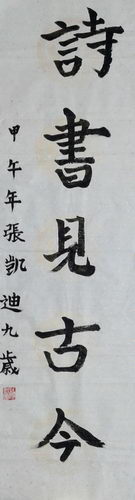 詩書見古今
甲午年張凱迪九歲